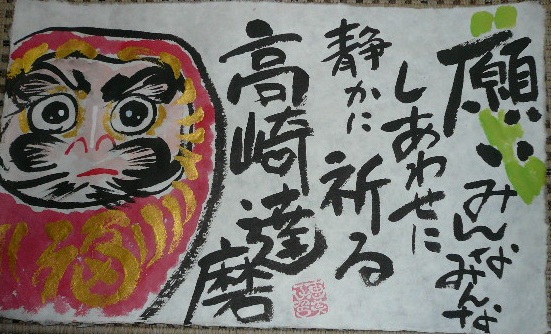 願い みんなみんな
しあわせに
静かに 祈る
高崎達磨
福